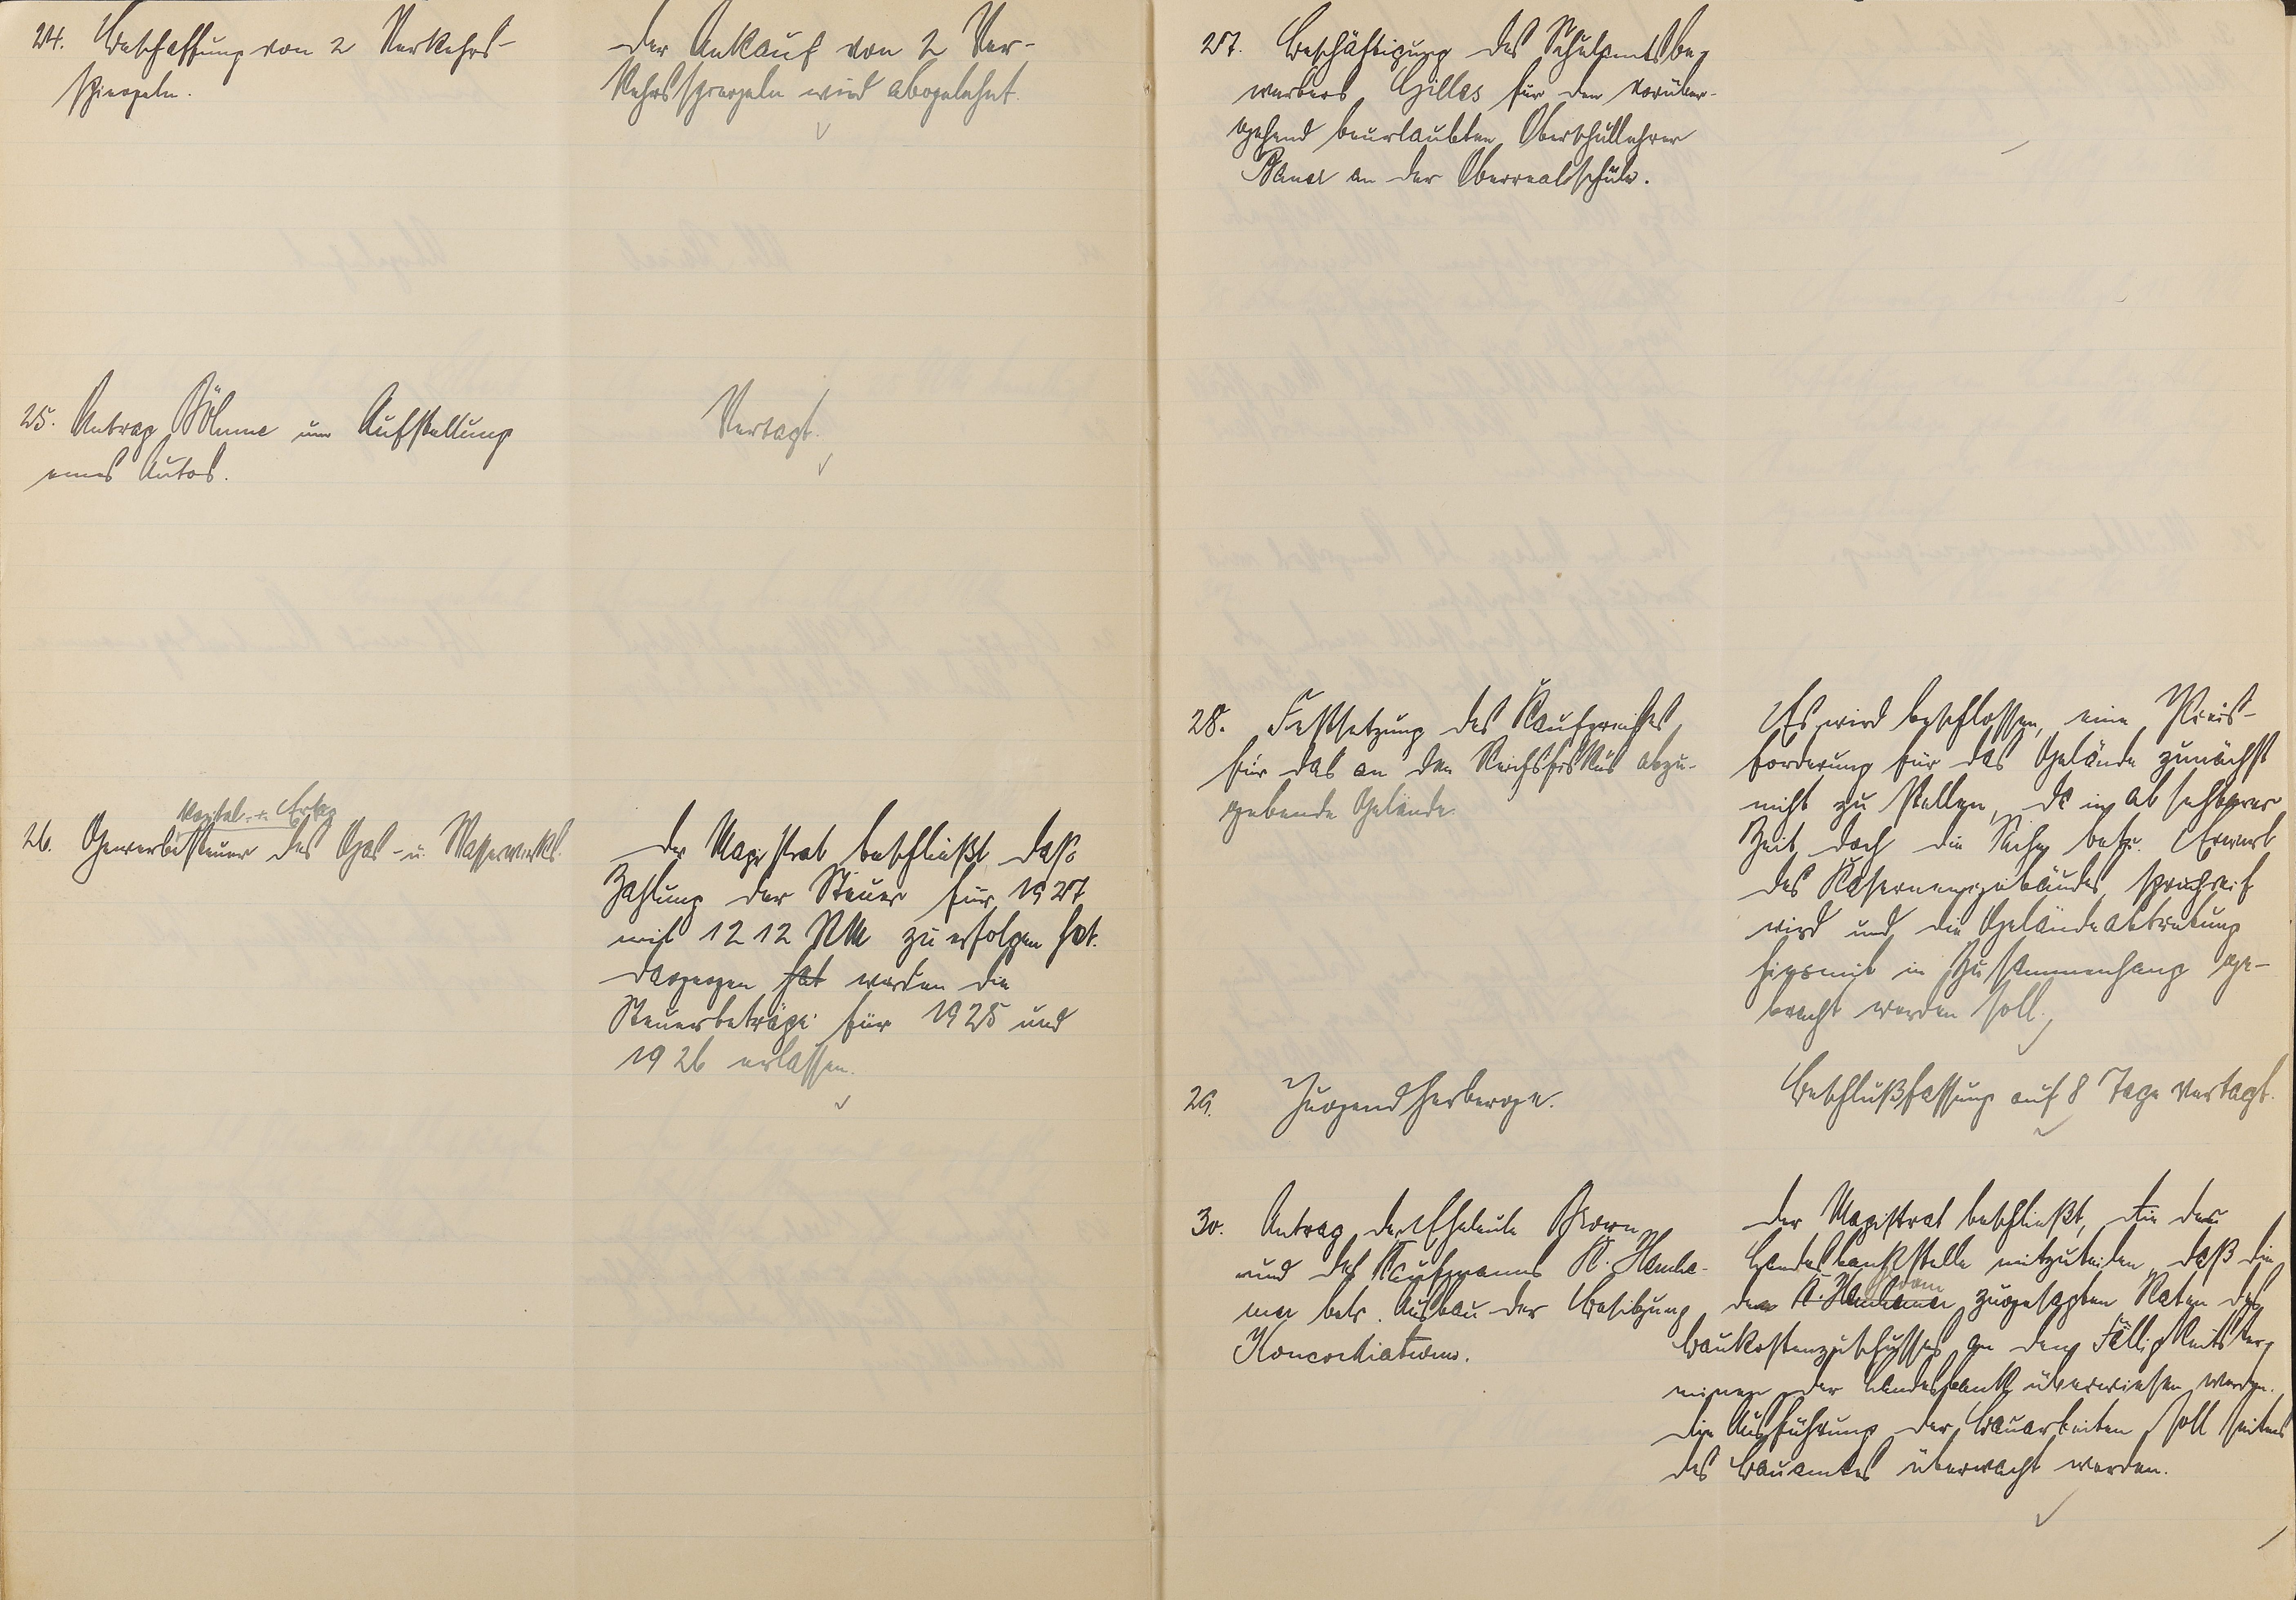 24. Beschaffung von 2 Verkehrs-
spiegeln.
Der Ankauf von 2 Ver-
kehrsspiegeln wird abgelehnt.
25. Antrag Böhme um Aufstellung
eines Autos.
Vertagt.
Kapital- + Ertrag
26. Gewerbesteuer des Gas- u. Wasserwerks.
Der Magistrat beschließt, daß
Zahlung der Steuer für 1927
mit 1212 RM zu erfolgen hat.
Dagegen hat werden die
Steuerbeträge für 1925 und
1926 erlassen.
27. Beschäftigung des Schulamtsbe-
werbers Gilles für den vorüber-
gehend beurlaubten Oberschullehrer
an der Oberrealschule.
28. Festsetzung des Kaufpreises
für das an den Reichsfiskus abzu-
gebende Gelände.
Es wird beschlossen, eine Preis-
forderung für das Gelände zunächst
nicht zu stellen, da in absehbarer
Zeit doch die Sache betr. Erwerb
des Kasernengebäudes spruchreif
wird und die Geländeabtretung
hiermit in Zusammenhang ge-
bracht werden soll.
29. Jugendherberge.
Beschlußfassung auf 8 Tage vertagt.
30. Antrag der Eheleute
und des Kaufmanns K.
betr. Ausbau der Besitzung
Der Magistrat beschließt, die der
Landesbankstelle mitzuteilen, daß die
den K. zugesagten Raten des
Baukostenzuschusses an den Fälligkeitster-
minen der Landesbank überwiesen werden.
Die Ausführung der Bauarbeiten soll seitens
des Bauamtes überwacht werden.